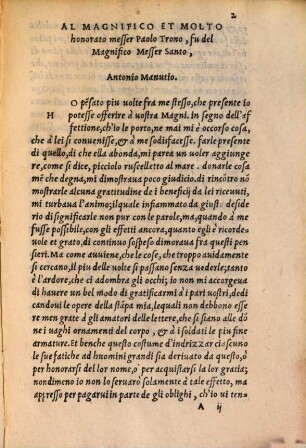 2
AL MAGNIFICO ET MOLTO
honorato messer Paolo Trono, fu del
Magnifico Messer Santo,
Antonio Manutio.
HO pẽsato piu uolte fra me stesso, che presente io
potesse offerire à uostra Magni. in segno dell'af
fettione, ch'io le porto, ne mai mi è occorso cosa,
che à lei si conuenisse, & à me sodisfacesse. Farle presente
di quello, di che ella abonda, mi parea un uoler aggiunge
re, come si dice, picciolo ruscelletto al mare. donarle cosa
mẽ che degna, mi dimostraua poco giudicio. di rincõtro nõ
mostrarle alcuna gratitudine de i beneficij da lei riceuuti,
mi turbaua l'animo; ilquale infiammato da giusto deside
rio di significarle non pur con le parole, ma, quando à me
fusse possibile, con gli effetti ancora, quanto egli è ricorde
uole et grato, di continuo sospeso dimoraua fra questi pen
sieri. Ma come auuiene, che le cose, che troppo auidamente
si cercano, il piu delle uolte si passano senza uederle; tanto
è l'ardore, che ci adombra gli occhi; io non mi accorgeua
di hauere un bel modo di gratificarmi à i pari uostri, dedi
candoui le opere della stãpa mia, lequali non debbono esse
re men grate à gli amatori delle lettere, che si siano alle dõ
ne i uaghi ornamenti del corpo, & à i soldati le piu fine
armature. Et benche questo costume d'indrizzar ciascuno
le sue fatiche ad huomini grandi sia deriuato da questo, ò
per honorarsi del lor nome, ò per acquistarsi la lor gratia;
nondimeno io non lo seruarò solamente à tal effetto, ma
appresso per pagarui in parte de gli oblighi, ch'io ui ten-
A ij